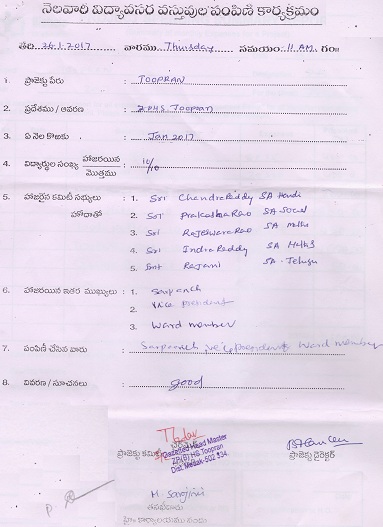 నెలవారి విద్యావసర వస్తువుల పంపిణి కార్యక్రమం
తేది. 26.1.2017 వారము Thursday సమయం: 11 AM. గం॥
1. ప్రాజెక్టు పేరు : TOOPRAN
2. ప్రదేశము / ఆవరణ : Z.P.H.S. Toopran
3. ఏ నెల కొఱకు : Jan 2017
4. విద్యార్థుల సంఖ్య హాజరయిన / మొత్తము : 10/10
5. హాజరైన కమిటీ సభ్యులు : 1. Sri Chandra Reddy SA Hindi
హోదాతో 2. Sri Prakasha Rao SA Social
3. Sri Rajeshwara Rao SA Maths
4. Sri Indra Reddy SA Maths
5. Smt Rajani SA - Telugu
6. హాజరయిన ఇతర ముఖ్యులు : 1. Sarpanch
2. Vice president
3. Ward member
7. పంపిణీ చేసిన వారు : Sarpanch, vice president, ward member
8. వివరణ / సూచనలు : good
Gazetted Head Master
ZP(B) HS Toopran
Dist. Medak-502 334.
ప్రాజెక్టు కమిటీ ప్రాజెక్టు డైరెక్టర్
M. Sarojini